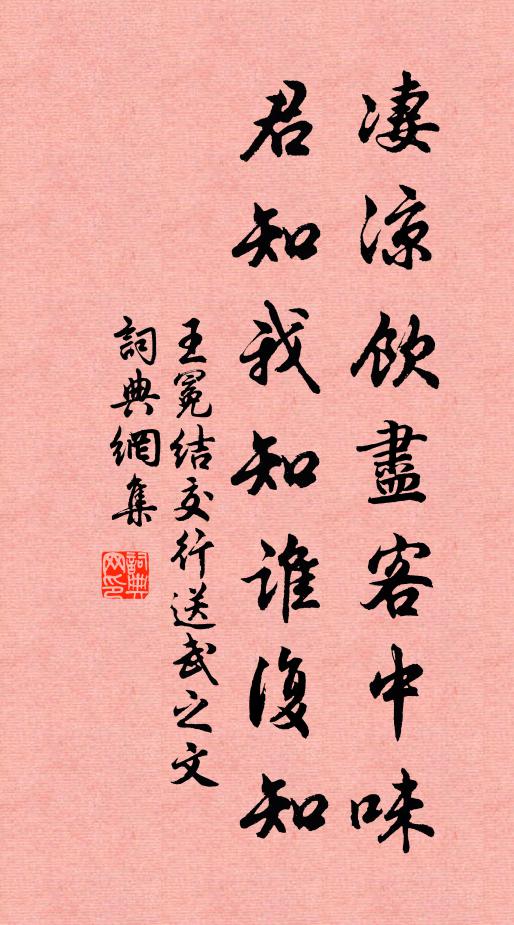 凄涼飲盡客中味
君知我知誰復知
王冕結交行送武之文
詞典網集
詞典網印